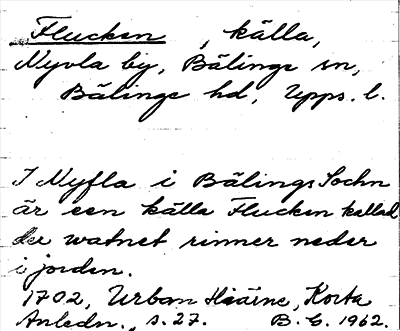 Flucken, källa,
Nyvla by, Bälinge sn,
Bälinge hd, Upps. l.
I Nyfla i Bälings Sochn
är een källa Flucken kallad
der watnet rinner neder
i jorden.
1702, Urban Hiärne, Korta
Anledn., s. 27. B. E. 1962.